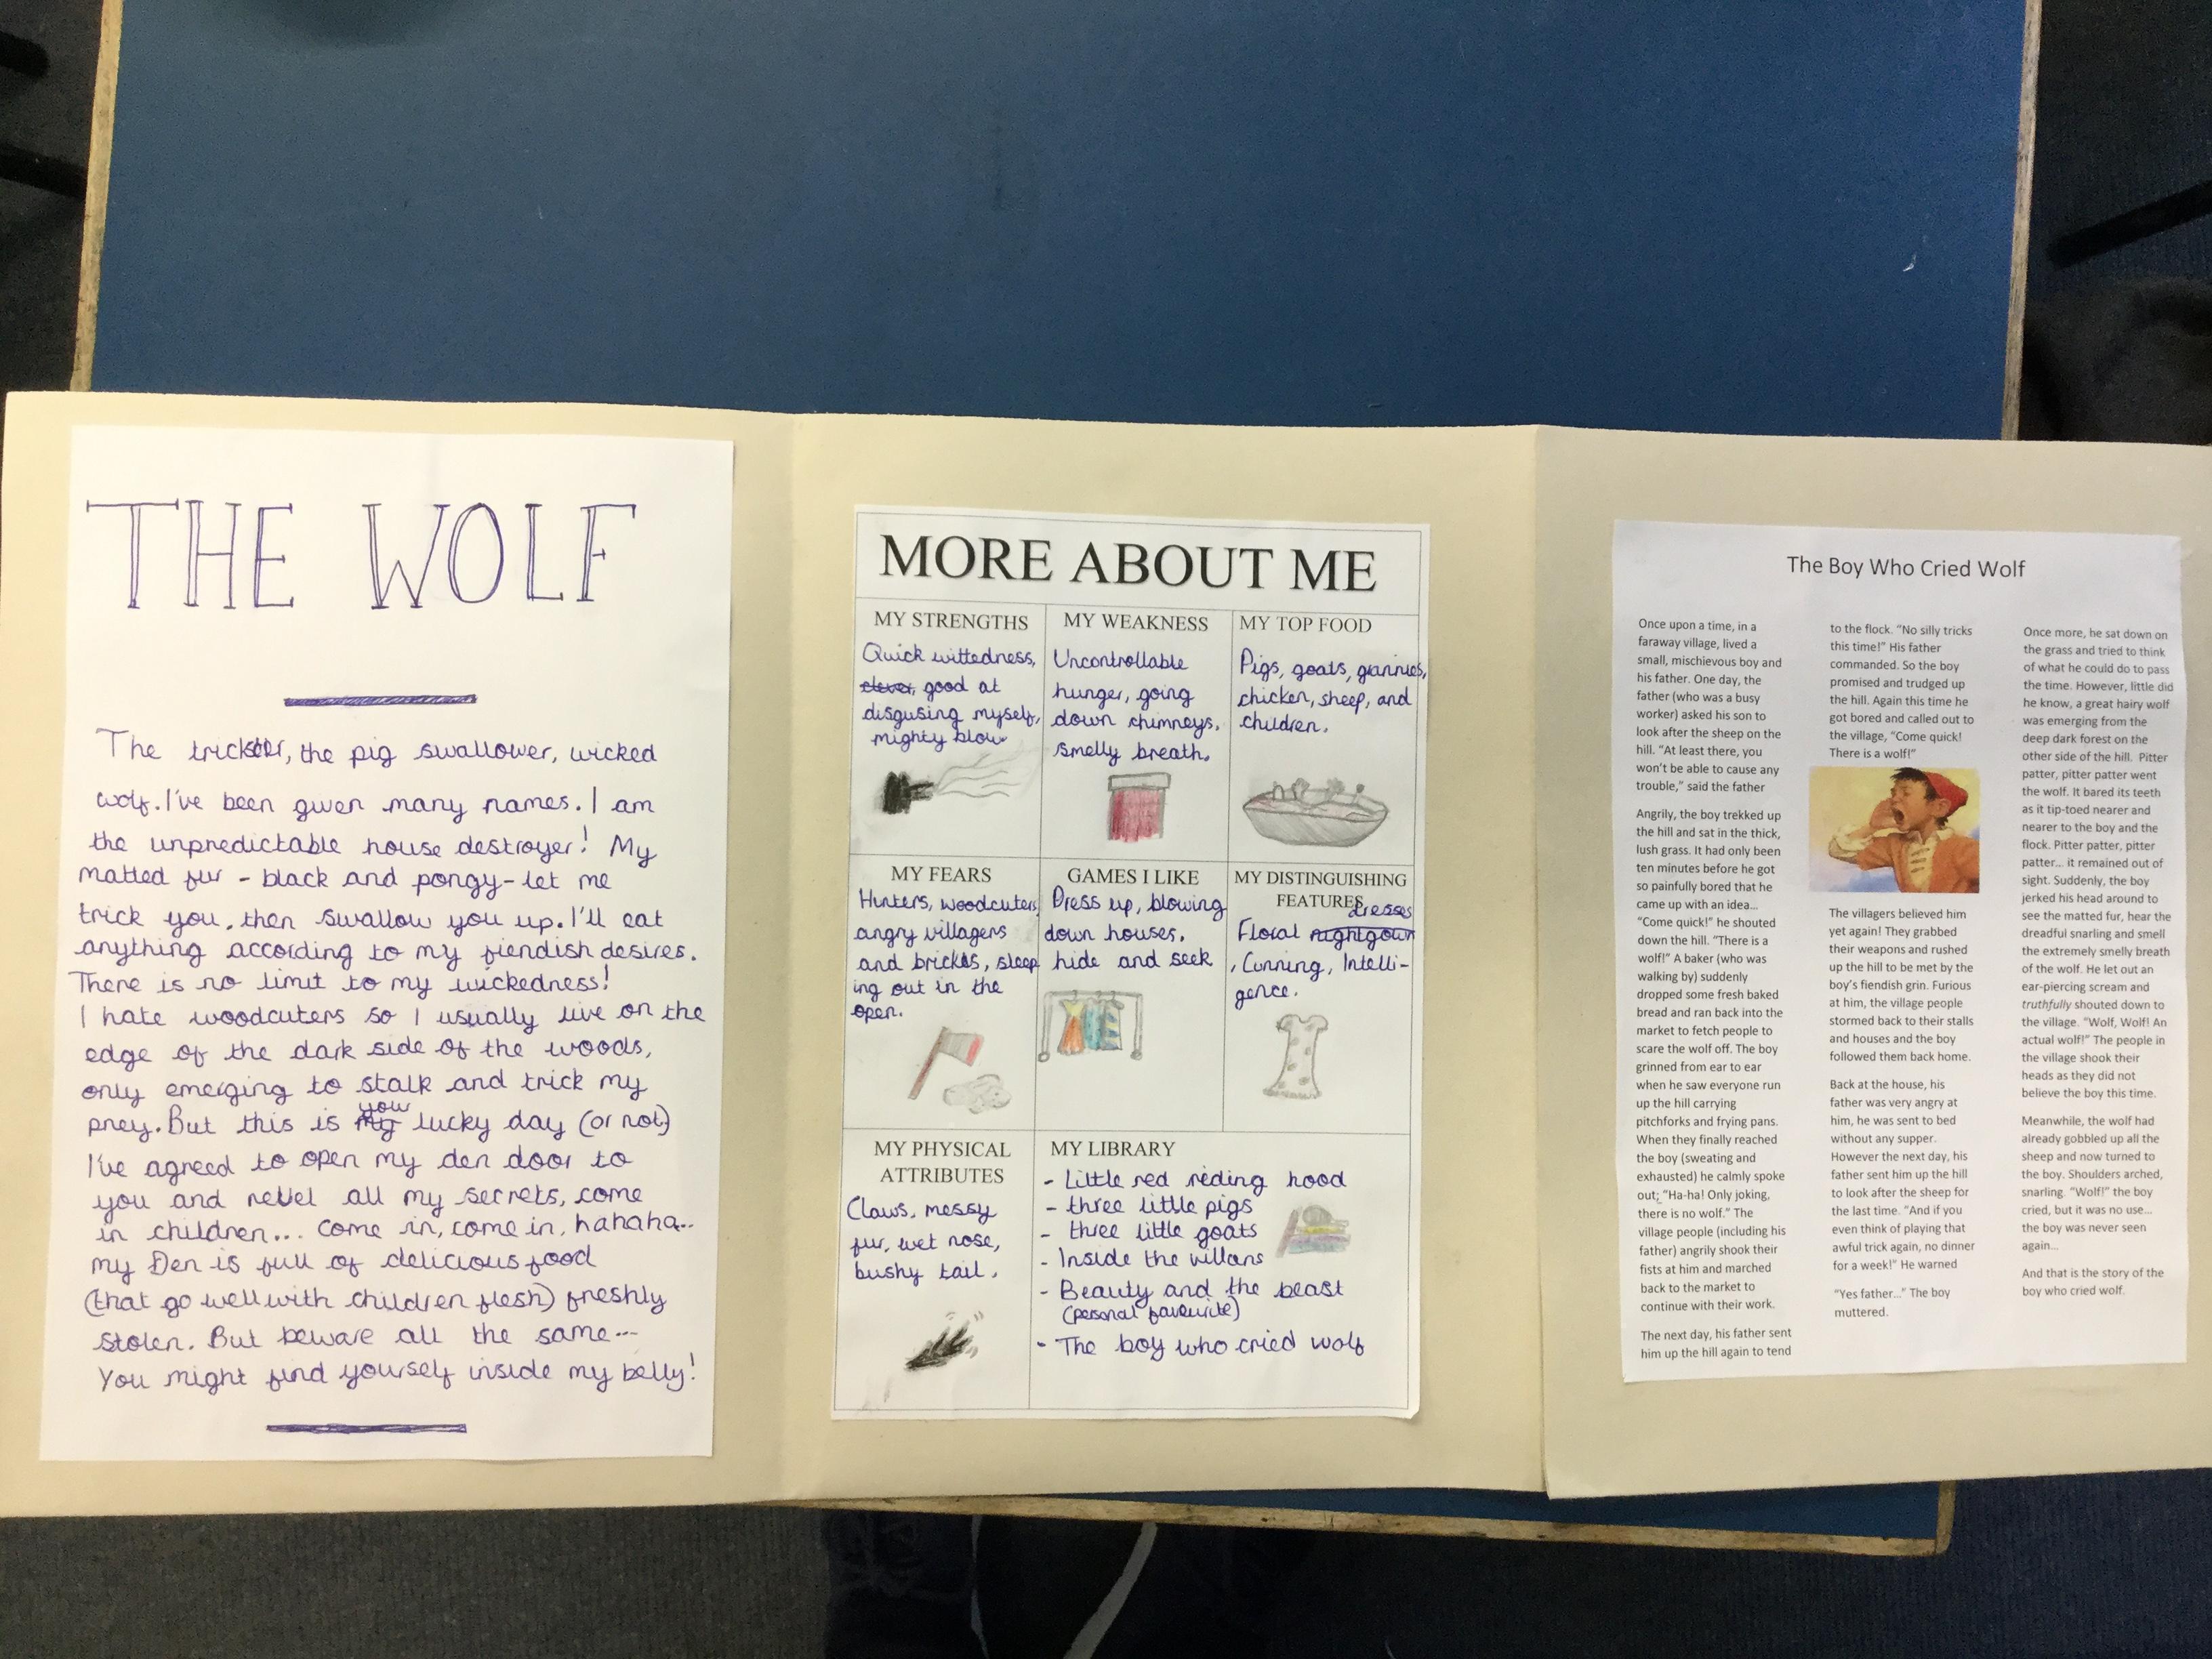 THE WOLF
The trickster, the pig swallower, wicked
wolf. I've been given many names. I am
the unpredictable house destroyer! My
matted fur - black and pongy - let me
trick you, then swallow you up. I'll eat
anything according to my fiendish desires.
There is no limit to my wickedness!
I hate woodcuters so I usually live on the
edge of the dark side of the woods,
only emerging to stalk and trick my
prey. But this is you lucky day (or not)
I've agreed to open my den door to
you and revel all my secrets, come
in children... Come in, come in, hahaha...
my Den is full of delicious food
(that go well with children flesh) freshly
stolen. But beware all the same...
You might find yourself inside my belly!
MORE ABOUT ME
MY STRENGTHS
Quick wittedness,
clever, good at
disgusing myself,
mighty blow
MY WEAKNESS
Uncontrollable
hunger, going
down chimneys,
smelly breath.
MY TOP FOOD
Pigs, goats, grannies,
chicken, sheep, and
children.
MY FEARS
Hunters, woodcuters
angry villagers
and bricks, sleep
ing out in the
open.
GAMES I LIKE
Dress up, blowing
down houses,
hide and seek
MY DISTINGUISHING
FEATURES
dresses
Floral nightgown
, Cunning, Intelli-
gence.
MY PHYSICAL
ATTRIBUTES
Claws, messy
fur, wet nose,
bushy tail.
MY LIBRARY
- Little red reding hood
- three little pigs
- three little goats
- Inside the villans
- Beauty and the beast
(personal favourite)
- The boy who cried wolf
The Boy Who Cried Wolf
Once upon a time, in a
faraway village, lived a
small, mischievous boy and
his father. One day, the
father (who was a busy
worker) asked his son to
look after the sheep on the
hill. "At least there, you
won't be able to cause any
trouble," said the father
Angrily, the boy trekked up
the hill and sat in the thick,
lush grass. It had only been
ten minutes before he got
so painfully bored that he
came up with an idea...
"Come quick!" he shouted
down the hill. "There is a
wolf!" A baker (who was
walking by) suddenly
dropped some fresh baked
bread and ran back into the
market to fetch people to
scare the wolf off. The boy
grinned from ear to ear
when he saw everyone run
up the hill carrying
pitchforks and frying pans.
When they finally reached
the boy (sweating and
exhausted) he calmly spoke
out; "Ha-ha! Only joking,
there is no wolf." The
village people (including his
father) angrily shook their
fists at him and marched
back to the market to
continue with their work.
The next day, his father sent
him up the hill again to tend
to the flock. "No silly tricks
this time!" His father
commanded. So the boy
promised and trudged up
the hill. Again this time he
got bored and called out to
the village, "Come quick!
There is a wolf!"
The villagers believed him
yet again! They grabbed
their weapons and rushed
up the hill to be met by the
boy's fiendish grin. Furious
at him, the village people
stormed back to their stalls
and houses and the boy
followed them back home.
Back at the house, his
father was very angry at
him, he was sent to bed
without any supper.
However the next day, his
father sent him up the hill
to look after the sheep for
the last time. "And if you
even think of playing that
awful trick again, no dinner
for a week!" He warned
"Yes father..." The boy
muttered.
Once more, he sat down on
the grass and tried to think
of what he could do to pass
the time. However, little did
he know, a great hairy wolf
was emerging from the
deep dark forest on the
other side of the hill. Pitter
patter, pitter patter went
the wolf. It bared its teeth
as it tip-toed nearer and
nearer to the boy and the
flock. Pitter patter, pitter
patter... it remained out of
sight. Suddenly, the boy
jerked his head around to
see the matted fur, hear the
dreadful snarling and smell
the extremely smelly breath
of the wolf. He let out an
ear-piercing scream and
truthfully shouted down to
the village. "Wolf, Wolf! An
actual wolf!" The people in
the village shook their
heads as they did not
believe the boy this time.
Meanwhile, the wolf had
already gobbled up all the
sheep and now turned to
the boy. Shoulders arched,
snarling. "Wolf!" the boy
cried, but it was no use...
the boy was never seen
again...
And that is the story of the
boy who cried wolf.